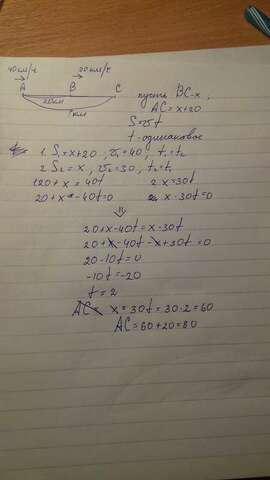 40км/ч 30км/ч
A B C
20км
пусть BC-x,
AC=x+20
S=vt
t-одинаковое
1. S₁=x+20, v₁=40, t₁=t₂
2. S₂=x, v₂=30, t₂=t₁
1 20+x=40t 2 x=30t
20+x-40t=0 x-30t=0
20+x-40t=x-30t
20+x-40t-x+30t=0
20-10t=0
-10t=-20
t=2
x=30t=30·2=60
AC=60+20=80